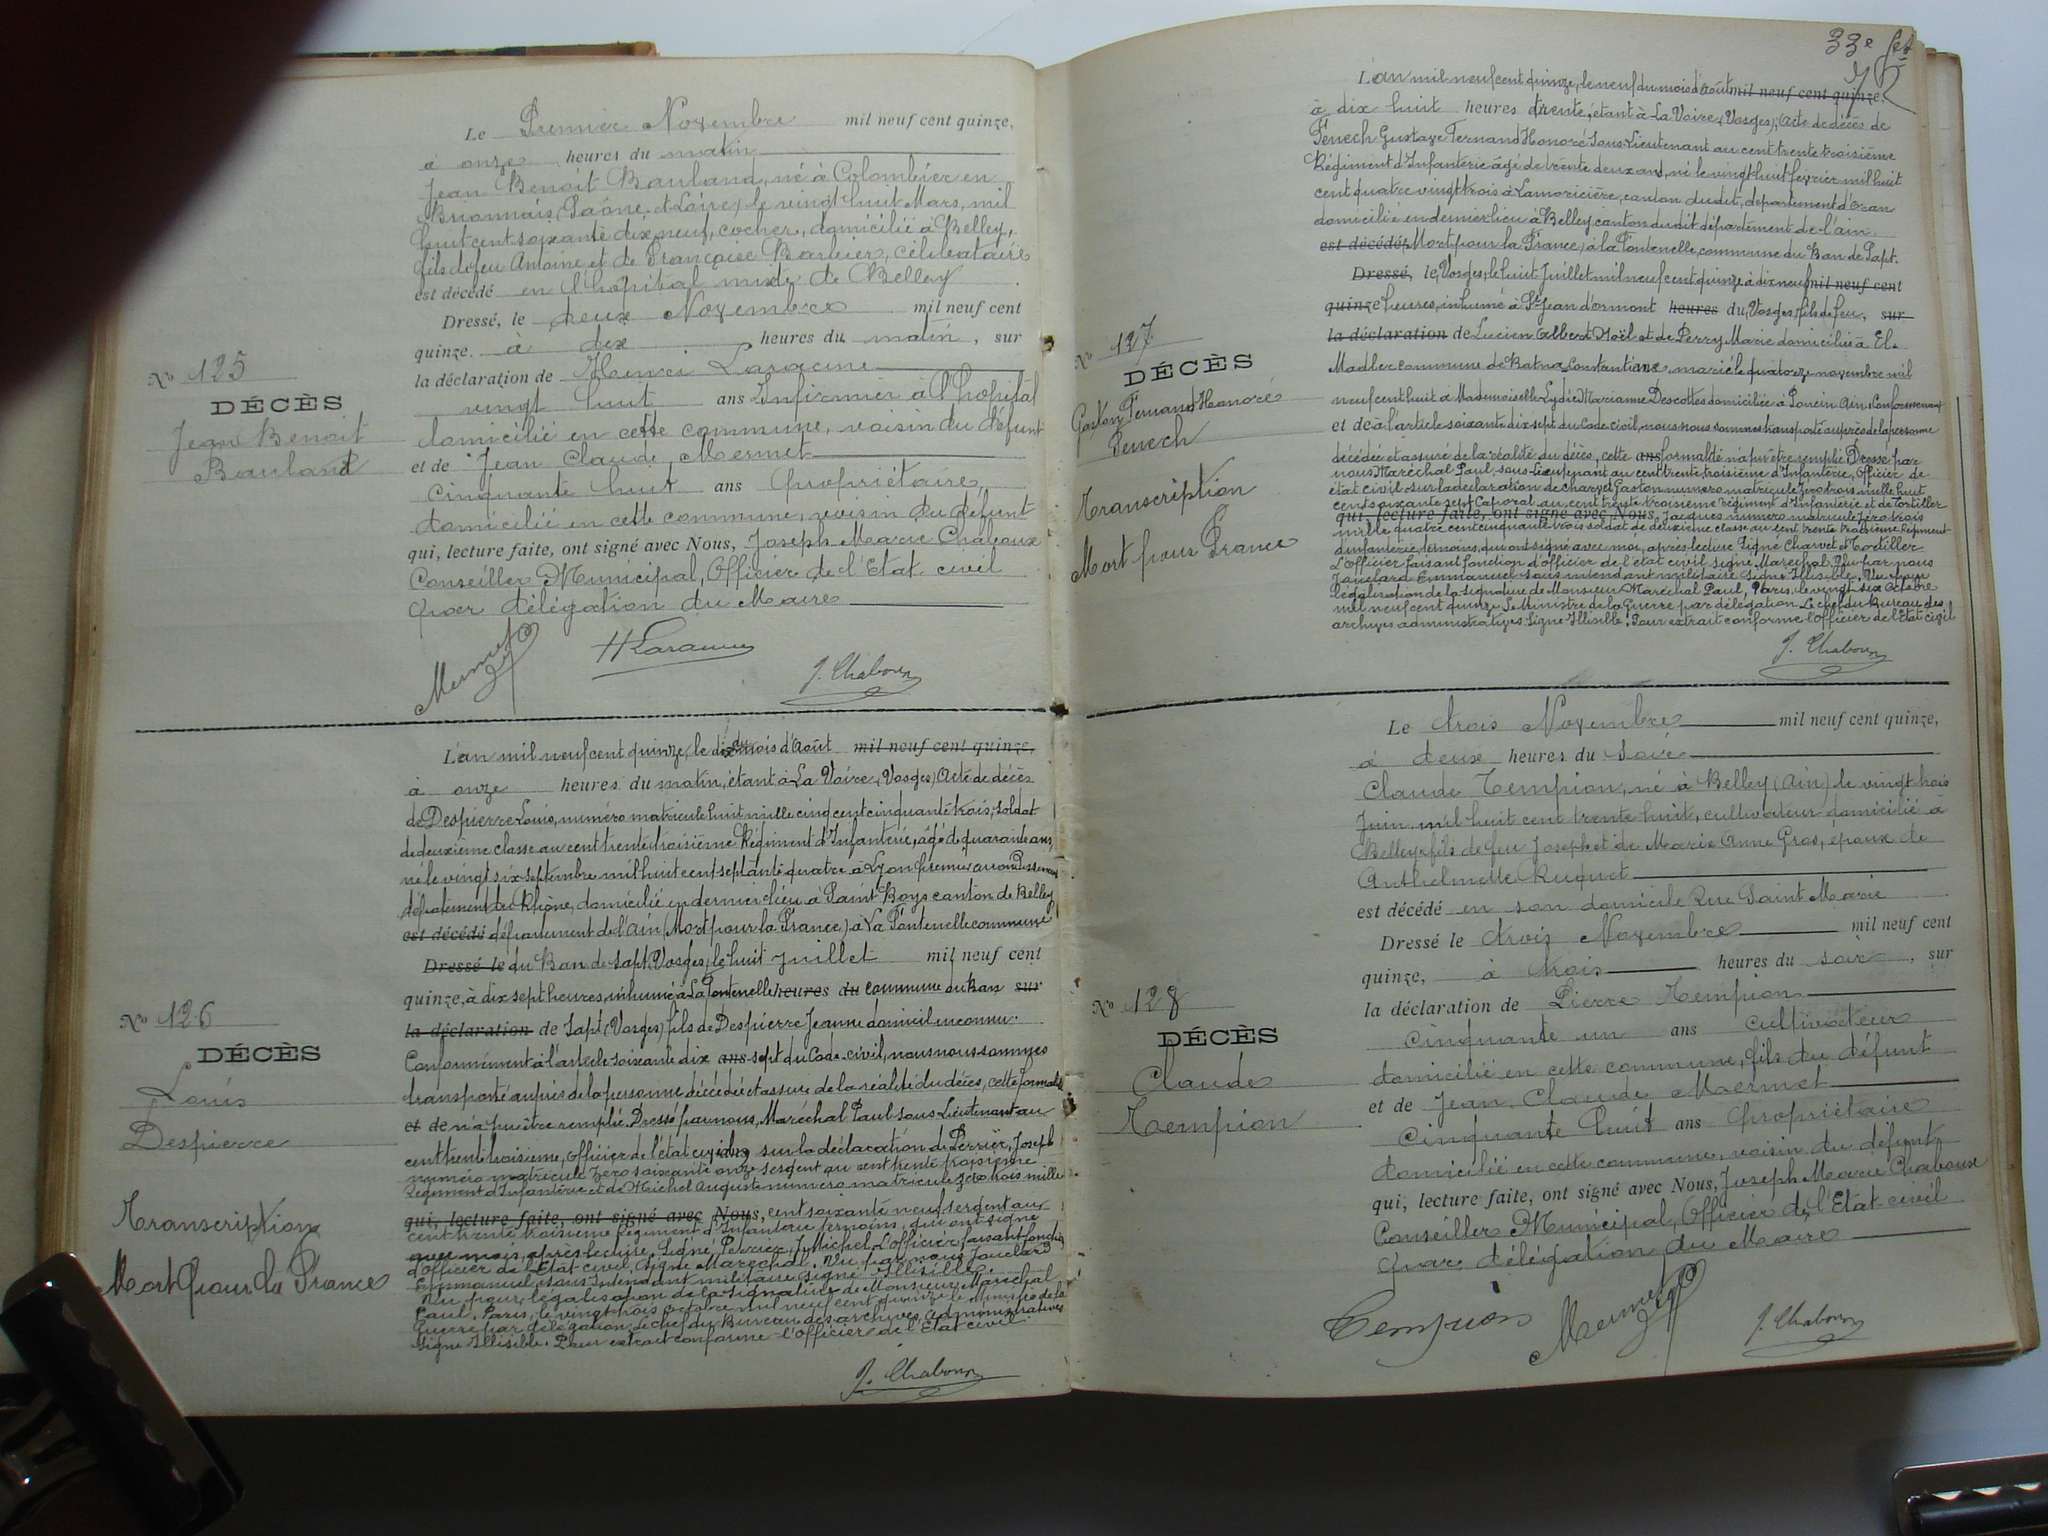 Le Premier Novembre mil neuf cent quinze,
à onze heures du matin
Jean Benoit Bauland, né à Colombier en
Brionnais, (Saône et Loire) le vingt huit Mars, mil
huit cent soixante dix neuf, cocher, domicilié à Belley,
fils de feu Antoine et de Françoise Barbier, célibataire
est décédé en l'hôpital mixte de Belley
Dressé, le deux Novembre mil neuf cent
quinze. à dix heures du matin, sur
la déclaration de Henri
vingt huit ans Infirmier à l'hôpital
domicilié en cette commune, voisin du défunt
et de Jean Claude Mermet
cinquante huit ans Propriétaire,
domicilié en cette commune, voisin du défunt
qui, lecture faite, ont signé avec Nous, Joseph Marie Chaboux
Conseiller Municipal, Officier de l'Etat civil
par délégation du Maire
Mermet
J. Chaboux
No 125
DÉCÈS
Jean Benoit
Bauland
L'an mil neuf cent quinze, le dix du mois d'Août mil neuf cent quinze,
à onze heures du matin, étant à La Voivre, (Vosges) Acte de décès
de Despierre Louis, numéro matricule huit mille cinq cent cinquante trois, soldat
de deuxième classe au cent trente troisième Régiment d'Infanterie, âgé de quarante ans,
né le vingt six septembre mil huit cent septante quatre à Lyon premier arrondissement
département du Rhône, domicilié en dernier lieu à Saint Boys canton de Belley
est décédé département de l'Ain (Mort pour la France) à La Fontenelle commune
Dressé le du Ban de Sapt, Vosges, le huit Juillet mil neuf cent
quinze, à dix sept heures, inhumé à La Fontenelle heures du commune du Ban sur
la déclaration de Sapt (Vosges) fils de Despierre Jeanne domicil inconnu.
Conformément à l'article soixante dix ans sept du Code civil, nous nous sommes
transporté auprès de la personne décédée et assuré de la réalité du décès, cette formalité
et de n'a pu être remplie. Dressé par nous, Maréchal Paul sous Lieutenant au
cent trente troisième, Officier de l'état civil, sur la déclaration de Perrier, Joseph
numéro matricule zéro soixante onze sergent au cent trente troisième
Régiment d'Infanterie et de Michel Auguste numéro matricule zéro trois mille
qui, lecture faite, ont signé avec Nous, cent soixante neuf sergent au
cent trente troisième Régiment d'Infanterie témoins, qui ont signé
avec moi, après lecture. Signé, Perrier, J. Michel. L'officier faisant fonction
d'Officier de l'Etat civil, signé Maréchal. Vu par nous Jouclard
Emmanuel sous Intendant militaire signé Illisible.
Vu pour légalisation de la signature de Monsieur Maréchal
Paul. Paris, le vingt trois octobre mil neuf cent quinze le Ministre de la
Guerre par délégation, le chef du Bureau des archives administratives
signé Illisible. Pour extrait conforme l'Officier de l'Etat civil.
J. Chaboux
No 126
DÉCÈS
Louis
Despierre
Transcription
Mort pour la France
33e
L'an mil neuf cent quinze, le neuf du mois d'Août mil neuf cent quinze,
à dix huit heures trente, étant à La Voivre, (Vosges), Acte de décès de
Fenech Gustave Fernand Honoré Sous-Lieutenant au cent trente troisième
Régiment d'Infanterie âgé de trente deux ans, né le vingt huit février mil huit
cent quatre vingt trois à Lamoricière, canton dudit, département d'Oran
domicilié en dernier lieu à Belley canton dudit département de l'Ain.
est décédé, Mort pour la France, à la Fontenelle, commune du Ban de Sapt.
Dressé, le, Vosges, le huit Juillet mil neuf cent quinze à dix neuf mil neuf cent
quinze heures, inhumé à St Jean d'ormont heures du, Vosges, fils de feu, sur
la déclaration de Lucien Albert Noël et de Perry Marie domiciliés à El.
Madher commune de Batna, Constantine, marié le quatorze novembre mil
neuf cent huit à Mademoiselle Lydie Marianne Descottes domiciliée à Poncin Ain. Conformément
et de à l'article soixante dix sept du Code civil, nous nous sommes transporté auprès de la personne
décédée et assuré de la réalité du décès, cette ans formalité n'a pu être remplie Dressé par
nous Maréchal Paul sous-Lieutenant au cent trente troisième d'Infanterie, Officier de
état civil sur la déclaration de Charvet Gaston numéro matricule zéro trois mille huit
cent soixante sept Caporal au cent trente troisième régiment d'Infanterie et de Tortiller
qui, lecture faite, ont signé avec Nous, Jacques numéro matricule zéro trois
mille quatre cent cinquante trois soldat de deuxième classe au cent trente troisième Régiment
d'infanterie, témoins, qui ont signé avec moi, après lecture Signé Charvet et Tortiller
L'Officier faisant fonction d'officier de l'état civil signé Maréchal Vu par nous
Jouclard Emmanuel sous intendant militaire signé Illisible. Vu pour
légalisation de la signature de Monsieur Maréchal Paul, Paris, le vingt six Octobre
mil neuf cent quinze Le Ministre de la Guerre par délégation Le chef du Bureau des
archives administratives Signé Illisible. Pour extrait conforme l'Officier de l'Etat civil
J. Chaboux
No 127
DÉCÈS
Gaston Fernand Honoré
Fenech
Transcription
Mort pour France
Le trois Novembre mil neuf cent quinze,
à deux heures du soir
Claude Tempion, né à Belley (Ain) le vingt trois
Juin mil huit cent trente huit, cultivateur domicilié à
Belley, fils de feu Joseph et de Marie Anne Gros, époux de
Anthelmette Ruquet
est décédé en son domicile Rue Saint Marie
Dressé le trois Novembre mil neuf cent
quinze, à trois heures du soir, sur
la déclaration de Pierre Tempion
cinquante un ans cultivateur
domicilié en cette commune, fils du défunt
et de Jean Claude Mermet
cinquante huit ans Propriétaire
domicilié en cette commune, voisin du défunt
qui, lecture faite, ont signé avec Nous, Joseph Marie Chaboux
Conseiller Municipal, Officier de l'Etat civil
par délégation du Maire
Tempion Mermet J. Chaboux
No 128
DÉCÈS
Claude
Tempion